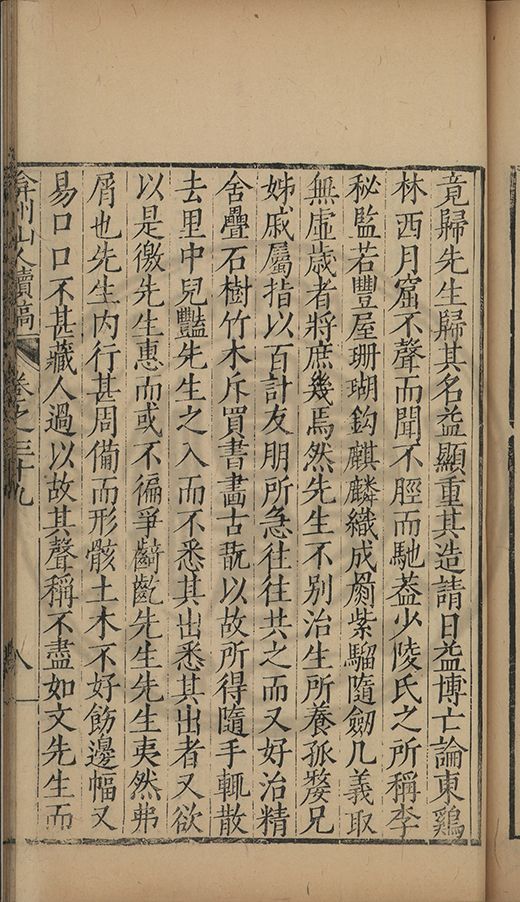 竟歸先生歸其名益顯重其造請日益博亡論東鷄
林西月窟不聲而聞不脛而馳葢少陵氏之所稱李
秘監若豐屋珊瑚鈎麒麟織成罽紫騮隨劒几義取
無虛歲者將庶幾焉然先生不别治生所養孤嫠兄
姊戚屬指以百計友朋所急往往共之而又好治精
舍疊石樹竹木斥買書畵古翫以故所得隨手輒散
去里中兒豔先生之入而不悉其出悉其出者又欲
以是徼先生惠而或不徧爭齮齕先生先生夷然弗
屑也先生内行甚周備而形骸土木不好飭邊幅又
易口口不甚藏人過以故其聲稱不盡如文先生而
弇州山人續稿 卷之三十九 八